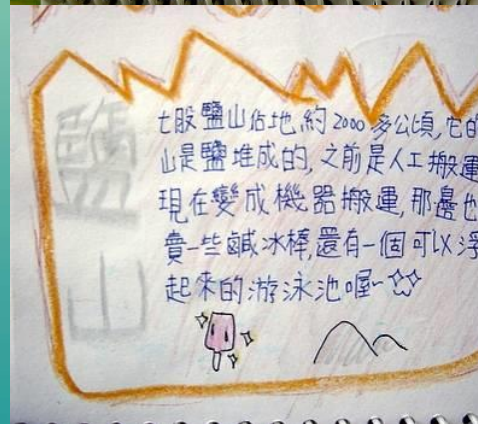 鹽山
七股鹽山佔地約2000多公頃,它的
山是鹽堆成的,之前是人工搬運
現在變成機器搬運,那邊也
賣一些鹹冰棒,還有一個可以浮
起來的游泳池喔~